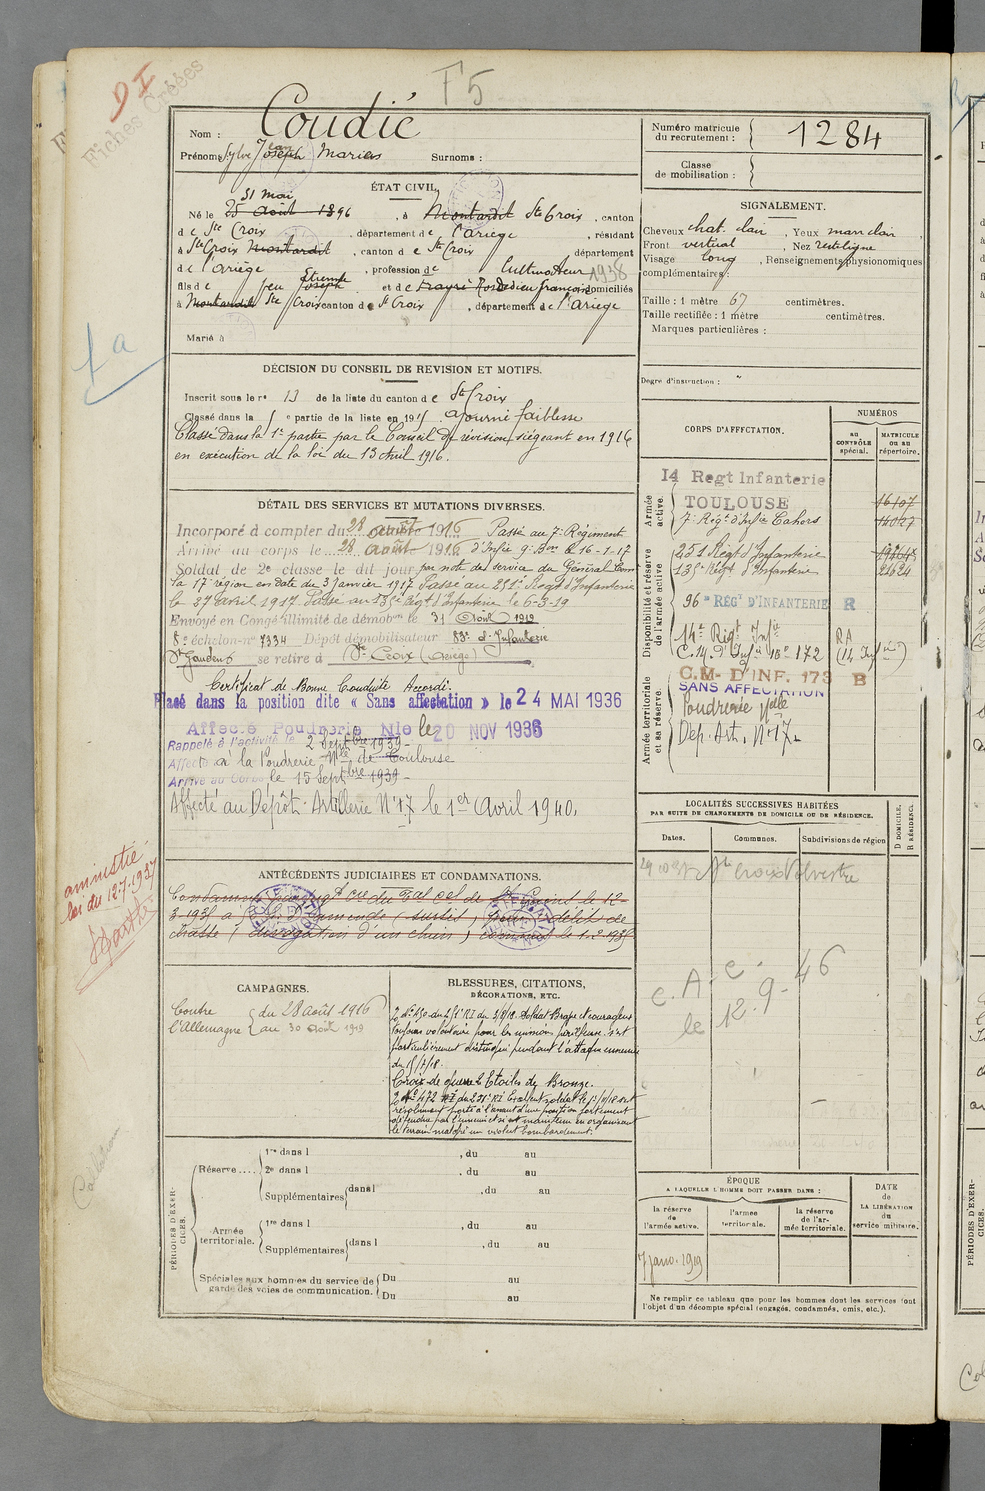 D I
Fiches Créées
F5
Nom : Coudié
Prénoms Sylve Jean Joseph Marius Surnoms :
Numéro matricule du recrutement : 1284
Classe de mobilisation :
ÉTAT CIVIL.
31 mai
Né le 25 août 1896, à Montardit Ste Croix, canton
de Ste Croix, département de l'Ariège, résidant
à Ste Croix Montardit, canton de Ste Croix département
de l'Ariège, profession de Cultivateur 1938
fils de feu Etienne Joseph et de Frayré Rose Dedieu françoise domiciliés
à Montardit Ste Croix canton de St Croix, département de l'Ariège
Marié à
1a
SIGNALEMENT.
Cheveux chat. clair, Yeux marr clair,
Front vertical, Nez rectiligne
Visage long, Renseignements physionomiques
complémentaires :
Taille : 1 mètre 67 centimètres.
Taille rectifiée : 1 mètre centimètres.
Marques particulières :
Degré d'instruction :
DÉCISION DU CONSEIL DE REVISION ET MOTIFS.
Inscrit sous le n° 13 de la liste du canton de Ste Croix
Classé dans la 5e partie de la liste en 1915. ajourné faiblesse
Classé dans la 1e partie par le Conseil de révision siégeant en 1916
en exécution de la loi du 13 Avril 1916.
DÉTAIL DES SERVICES ET MUTATIONS DIVERSES.
Incorporé à compter du 28 août 1916 Passé au 7e Régiment
Arrivé au corps le 28 août 1916 d'Inf'ie 9e Bon le 16-1-17
Soldat de 2e classe le dit jour par note de service du Général Com
la 17e région en date du 3 janvier 1917 Passé au 251e Regt d'Infanterie
le 27 avril 1917 Passé au 135e Régt d'Infanterie le 6-3-19
Envoyé en Congé illimité de démobon le 31 Août 1919
8e échelon-n° 7334 Dépôt démobilisateur 83e d'Infanterie
St Gaudens se retire à Ste Croix (Ariège)
Certificat de Bonne Conduite Accordé.
Placé dans la position dite « Sans affectation » le 24 MAI 1936
Affecté Poudrerie Nle le 20 NOV 1936
Rappelé à l'activité le 2 Septbre 1939
Affecté à la Poudrerie Nle de Toulouse
Arrivé au Corps le 15 Septbre 1939
Affecté au Dépôt Artillerie N°17 le 1er Avril 1940.
CORPS D'AFFECTATION.
NUMÉROS
AU CONTRÔLE spécial.
MATRICULE ou au répertoire.
Armée active.
14 Regt Infanterie
TOULOUSE 16107
7e Régt d'Infie Cahors
Disponibilité et réserve de l'armée active
251 Régt d'Infanterie
135e Régt d'Infanterie 21624
96e RÉGt D'INFANTERIE R
14e Régt Infie RA
C.M. d'Infie 18e 172
C.M. D'INF. 173 B
Armée territoriale et sa réserve.
SANS AFFECTATION
Poudrerie Nlle
Dép. Art. N°17
LOCALITÉS SUCCESSIVES HABITÉES
PAR SUITE DE CHANGEMENTS DE DOMICILE OU DE RÉSIDENCE.
Dates. Communes. Subdivisions de région
D DOMICILE. R RÉSIDENCE.
Ste Croix Volvestre
c. A. c.
le 12-9-46
amnistié
loi du 12.7.1937
ANTÉCÉDENTS JUDICIAIRES ET CONDAMNATIONS.
Condamné par jugt
chasse ( divagation d'un chien ) commis le 1-2-1935
CAMPAGNES.
Contre l'Allemagne
du 28 août 1916
au 30 août 1919
BLESSURES, CITATIONS,
DÉCORATIONS, ETC.
Soldat Brave et courageux
toujours volontaire pour les missions périlleuses s'est
particulièrement distingué pendant l'attaque ennemie
du 15/7/18.
Croix de guerre 2 Etoiles de Bronze.
résolument porté à l'assaut d'une position fortement
défendue par l'ennemi et s'est maintenu en organisant
le terrain malgré un violent bombardement.
PÉRIODES D'EXERCICES.
Réserve....
1re dans l , du au
2e dans l , du au
Supplémentaires dans l , du au
Armée territoriale.
1re dans l , du au
Supplémentaires dans l , du au
Spéciales aux hommes du service de garde des voies de communication. Du au
Du au
ÉPOQUE
A LAQUELLE L'HOMME DOIT PASSER DANS :
la réserve de l'armée active.
l'armée territoriale.
la réserve de l'armée territoriale.
DATE de LA LIBÉRATION du service militaire.
7 janv. 1919
Ne remplir ce tableau que pour les hommes dont les services font
l'objet d'un décompte spécial (engagés, condamnés, omis, etc.).
PÉRIODES D'EXER-
CICES.